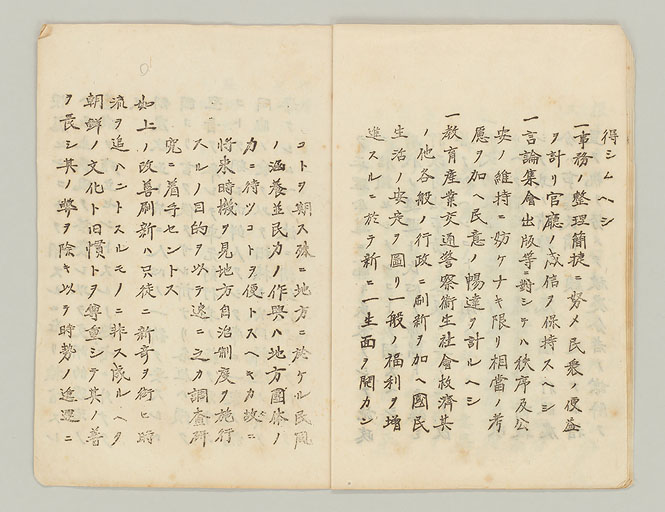 得シムヘシ
一事務ノ整理簡捷ニ努メ民衆ノ便益
ヲ計リ官廳ノ威信ヲ保持スヘシ
一言論集會出版等ニ對シテハ秩序及公
安ノ維持ニ妨ケナキ限リ相當ノ考
慮ヲ加ヘ民意ノ暢達ヲ計ルヘシ
一教育産業交通警察衞生社會救濟其
ノ他各般ノ行政ニ刷新ヲ加ヘ國民
生活ノ安定ヲ圖リ一般ノ福利ヲ增
進スルニ於テ新ニ一生面ヲ開カン
コトヲ期ス殊ニ地方ニ於ケル民風
ノ涵養並民力ノ作興ハ地方團体ノ
力ニ待ツコトヲ便トスヘキカ故ニ
將来時機ヲ見地方自治制度ヲ施行
スルノ目的ヲ以テ速ニ之カ調査研
究ニ着手セントス
如上ノ改善刷新ハ只徒ニ新奇ヲ衒ヒ時
流ヲ追ハントスルモノニ非ス能ルヘク
朝鮮ノ文化ト旧慣トヲ尊重シテ其ノ善
ヲ長シ其ノ弊ヲ除キ以テ時勢ノ進運ニ